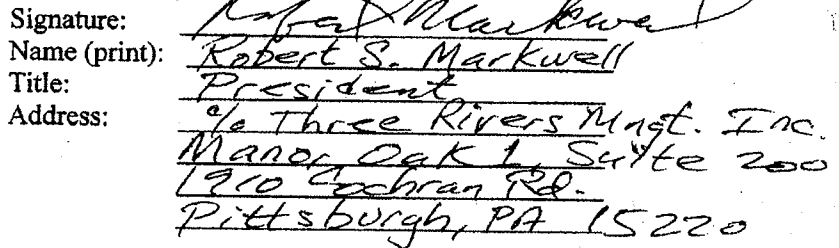 Signature: Robert Markwell
Name (print): Robert S. Markwell
Title: President
Address: c/o Three Rivers Mngt. Inc.
Manor Oak 1, Suite 200
1910 Cochran Rd.
Pittsburgh, PA 15220